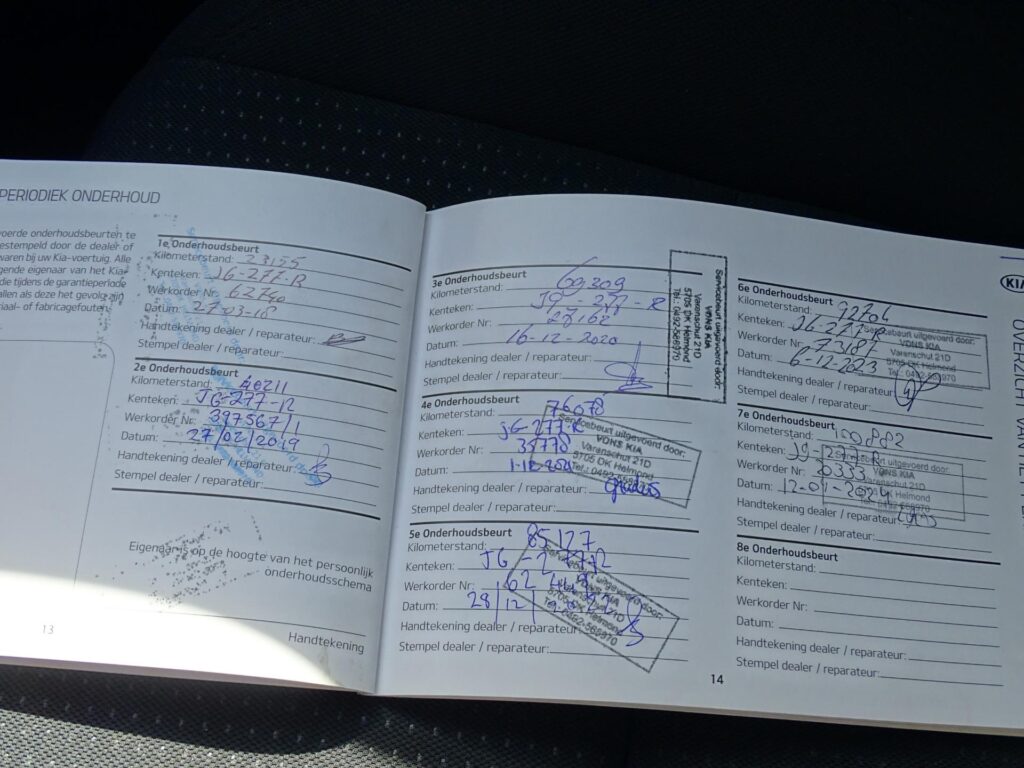 PERIODIEK ONDERHOUD
voerde onderhoudsbeurten te
estempeld door de dealer of
waren bij uw Kia-voertuig. Alle
gende eigenaar van het Kia-
die tijdens de garantieperiode
allen als deze het gevolg zijn
riaal- of fabricagefouten.
1e Onderhoudsbeurt
Kilometerstand: 23155
Kenteken: JG-277-R
Werkorder Nr: 62790
Datum: 27-03-18
Handtekening dealer / reparateur:
Stempel dealer / reparateur:
2e Onderhoudsbeurt
Kilometerstand: 40211
Kenteken: JG-277-R
Werkorder Nr: 397567/1
Datum: 27/02/2019
Handtekening dealer / reparateur:
Stempel dealer / reparateur:
Eigenaar is op de hoogte van het persoonlijk
onderhoudsschema
Handtekening
13
3e Onderhoudsbeurt
Kilometerstand: 69209
Kenteken: JG-277-R
Werkorder Nr: 27162
Datum: 16-12-2020
Handtekening dealer / reparateur:
Stempel dealer / reparateur:
Servicebeurt uitgevoerd door:
VDNS KIA
Varenschut 21D
5705 DK Helmond
Tel.: 0492-565970
4e Onderhoudsbeurt
Kilometerstand: 76078
Kenteken: JG-277-R
Werkorder Nr: 35770
Datum: 1-12-2021
Handtekening dealer / reparateur:
Stempel dealer / reparateur:
Servicebeurt uitgevoerd door:
VDNS KIA
Varenschut 21D
5705 DK Helmond
5e Onderhoudsbeurt
Kilometerstand: 85127
Kenteken: JG-277-R
Werkorder Nr: 62
Datum: 28 | 12 |
Handtekening dealer / reparateur:
Stempel dealer / reparateur:
Servicebeurt uitgevoerd door:
VDNS KIA
Varenschut 21D
5705 DK Helmond
Tel.: 0492-565970
14
6e Onderhoudsbeurt
Kilometerstand: 92706
Kenteken: JG-277-R
Werkorder Nr: 73187
Datum: 6-12-2023
Handtekening dealer / reparateur:
Stempel dealer / reparateur:
Servicebeurt uitgevoerd door:
VDNS KIA
Varenschut 21D
5705 DK Helmond
Tel.: 0492-565970
7e Onderhoudsbeurt
Kilometerstand: 100882
Kenteken: JG-277-R
Werkorder Nr:
Datum: 12-01-2024
Handtekening dealer / reparateur:
Stempel dealer / reparateur:
Servicebeurt uitgevoerd door:
VDNS KIA
Varenschut 21D
5705 DK Helmond
Tel.: 0492-565970
8e Onderhoudsbeurt
Kilometerstand:
Kenteken:
Werkorder Nr:
Datum:
Handtekening dealer / reparateur:
Stempel dealer / reparateur:
KIA
OVERZICHT VAN HET PE